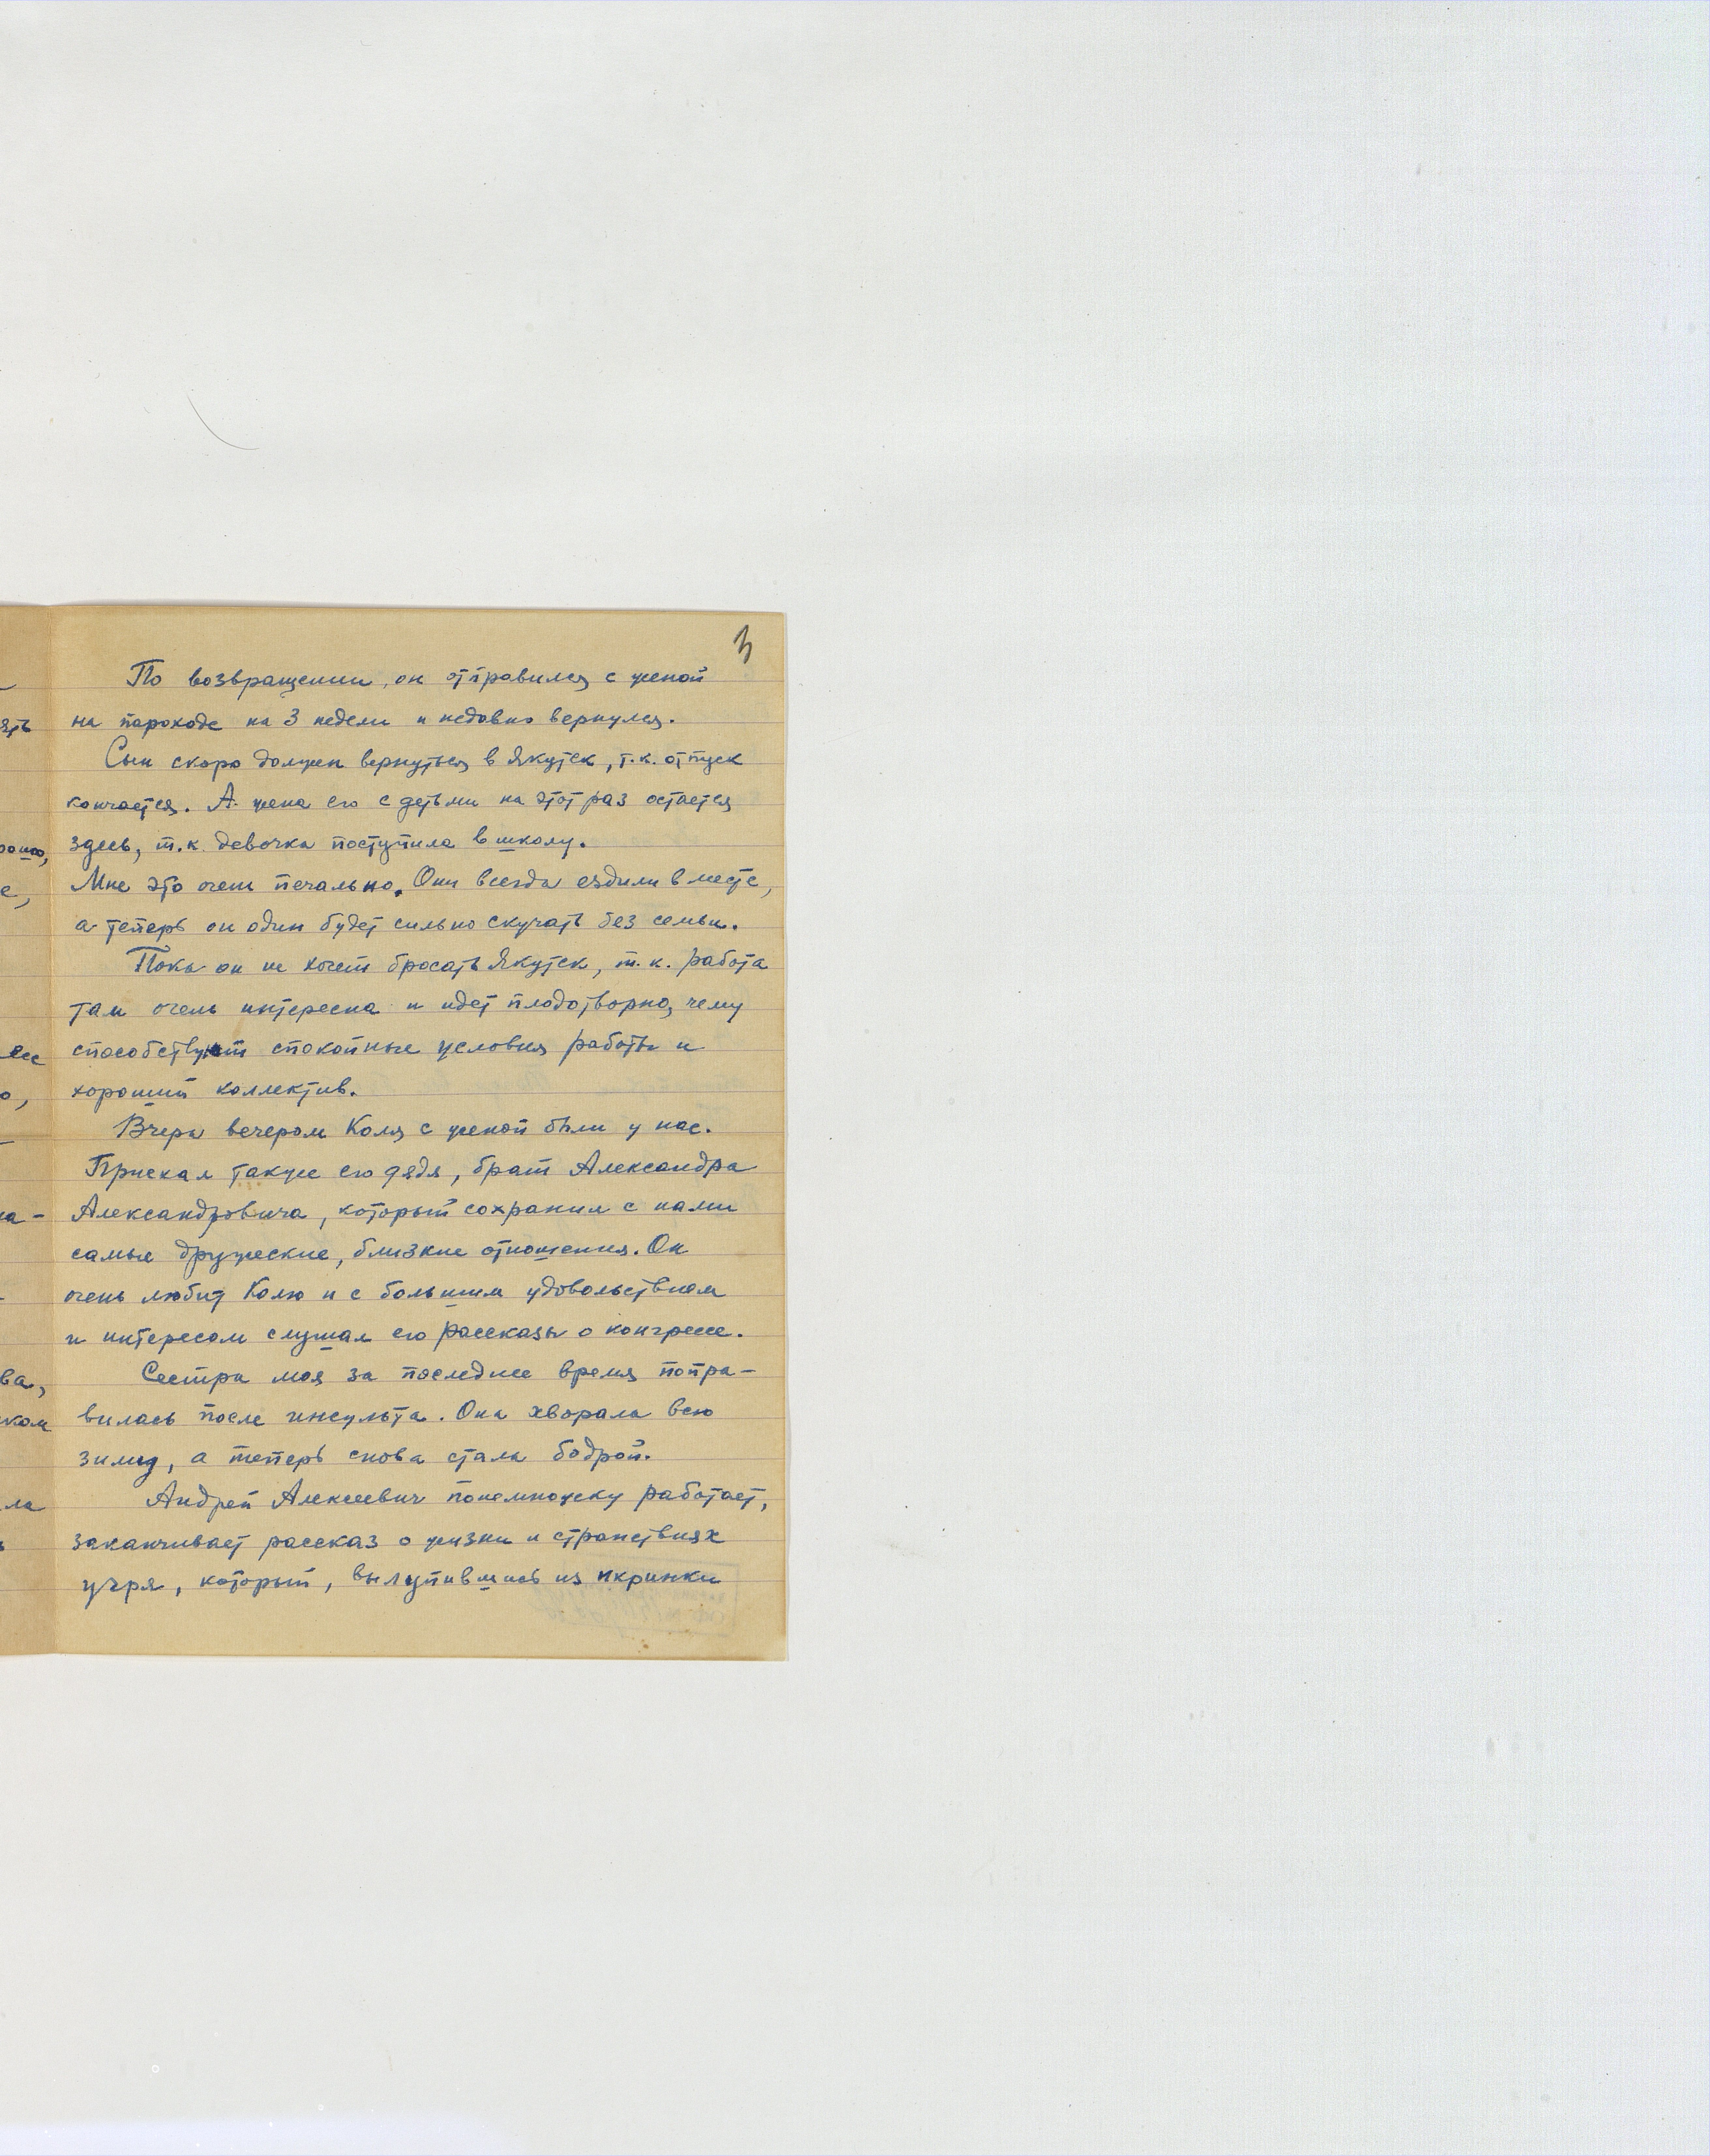 3
По возвращении, он отправился с женой
на пароходе на 3 недели и недавно вернулся.
Сын скоро должен вернуться в Якутск, т.к. отпуск
кончается. А жена его с детьми на этот раз остается
здесь, т.к. девочка поступила в школу.
Мне это очень печально. Они всегда ездили вместе,
а теперь он один будет сильно скучать без семьи.
Пока он не хочет бросать Якутск, т.к. работа
там очень интересна и идет плодотворно, чему
способствуют спокойные условия работы и
хороший коллектив.
Вчера вечером Коля с женой были у нас.
Приехал также его дядя, брат Александра
Александровича, который сохранил с нами
самые дружеские, близкие отношения. Он
очень любит Колю и с большим удовольствием
и интересом слушал его рассказы о конгрессе.
Сестра моя за последнее время попра-
вилась после инсульта. Она хворала всю
зиму, а теперь снова стала бодрой.
Андрей Алексеевич понемножку работает,
заканчивает рассказ о жизни и странствиях
угря, который, вылупившись из икринки